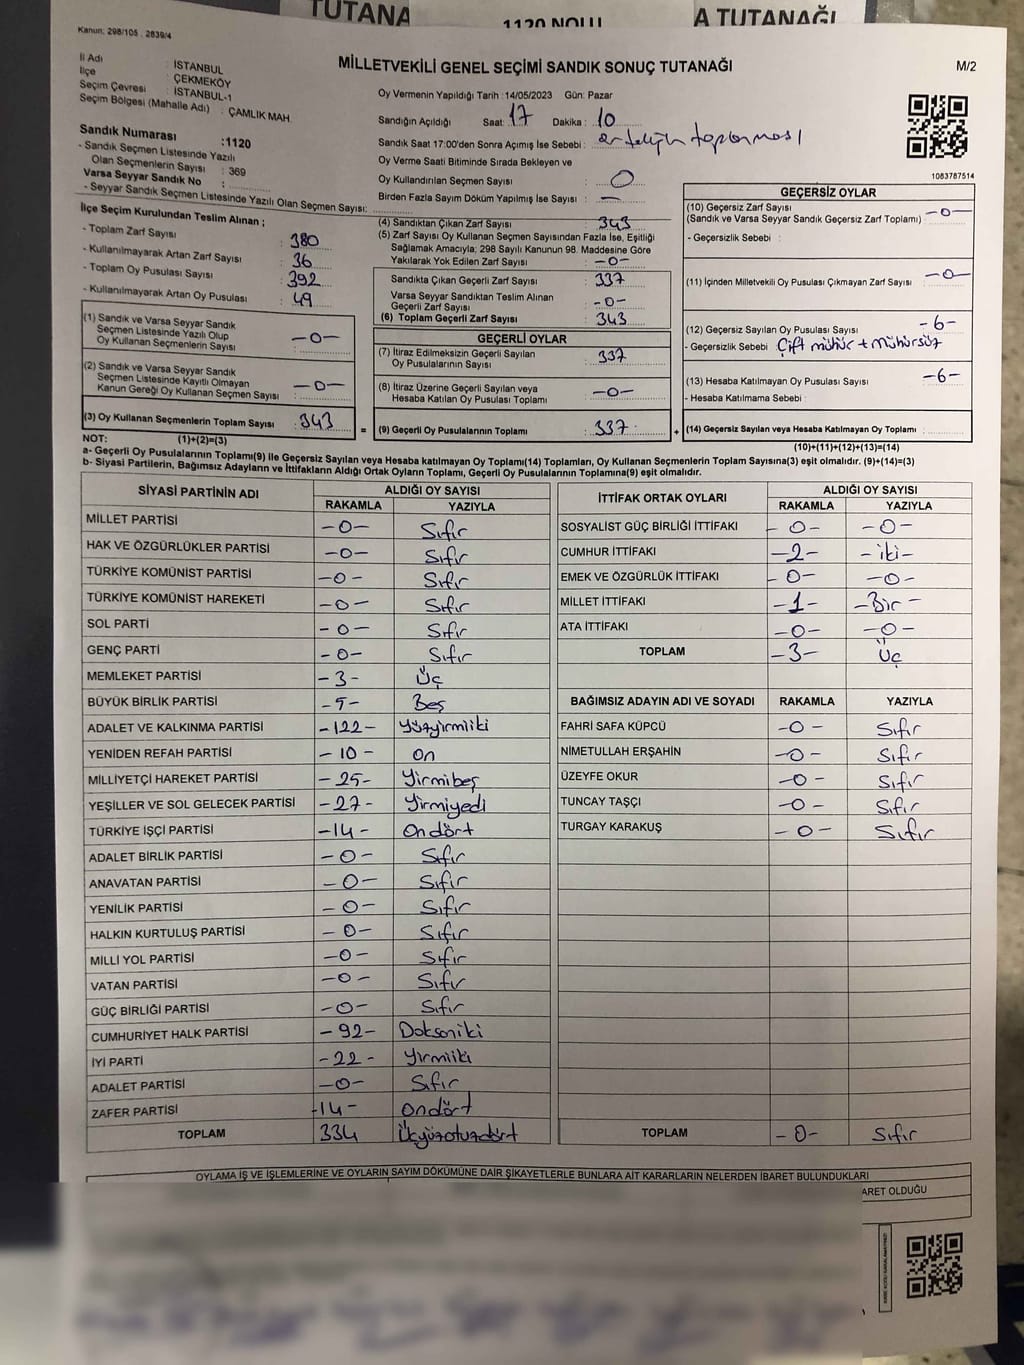 TUTANA
1120 NOLU
A TUTANAĞI
Kanun: 298/105 . 2839/4
MİLLETVEKİLİ GENEL SEÇİMİ SANDIK SONUÇ TUTANAĞI
M/2
İl Adı : İSTANBUL
İlçe : ÇEKMEKÖY
Seçim Çevresi : İSTANBUL-1
Seçim Bölgesi (Mahalle Adı) : ÇAMLIK MAH.
Sandık Numarası :1120
- Sandık Seçmen Listesinde Yazılı
Olan Seçmenlerin Sayısı : 369
Varsa Seyyar Sandık No :
- Seyyar Sandık Seçmen Listesinde Yazılı Olan Seçmen Sayısı:
Oy Vermenin Yapıldığı Tarih :14/05/2023 Gün: Pazar
Sandığın Açıldığı Saat: 17 Dakika : 10
Sandık Saat 17:00'den Sonra Açımış İse Sebebi : toplanması
Oy Verme Saati Bitiminde Sırada Bekleyen ve
Oy Kullandırılan Seçmen Sayısı : 0
Birden Fazla Sayım Döküm Yapılmış İse Sayısı : -
1083787514
İlçe Seçim Kurulundan Teslim Alınan ;
- Toplam Zarf Sayısı : 380
- Kullanılmayarak Artan Zarf Sayısı : 36
- Toplam Oy Pusulası Sayısı : 392
- Kullanılmayarak Artan Oy Pusulası : 49
(1) Sandık ve Varsa Seyyar Sandık
Seçmen Listesinde Yazılı Olup
Oy Kullanan Seçmenlerin Sayısı : -0-
(2) Sandık ve Varsa Seyyar Sandık
Seçmen Listesinde Kayıtlı Olmayan
Kanun Gereği Oy Kullanan Seçmen Sayısı : -0-
(3) Oy Kullanan Seçmenlerin Toplam Sayısı : 343
(4) Sandıktan Çıkan Zarf Sayısı : 343
(5) Zarf Sayısı Oy Kullanan Seçmen Sayısından Fazla İse, Eşitliği
Sağlamak Amacıyla; 298 Sayılı Kanunun 98. Maddesine Göre
Yakılarak Yok Edilen Zarf Sayısı : -0-
Sandıkta Çıkan Geçerli Zarf Sayısı : 337
Varsa Seyyar Sandıktan Teslim Alınan
Geçerli Zarf Sayısı : -0-
(6) Toplam Geçerli Zarf Sayısı : 343
GEÇERLİ OYLAR
(7) İtiraz Edilmeksizin Geçerli Sayılan
Oy Pusulalarının Sayısı : 337
(8) İtiraz Üzerine Geçerli Sayılan veya
Hesaba Katılan Oy Pusulası Toplamı : -0-
= (9) Geçerli Oy Pusulalarının Toplamı : 337
GEÇERSİZ OYLAR
(10) Geçersiz Zarf Sayısı
(Sandık ve Varsa Seyyar Sandık Geçersiz Zarf Toplamı) : -0-
- Geçersizlik Sebebi :
(11) İçinden Milletvekili Oy Pusulası Çıkmayan Zarf Sayısı : -0-
(12) Geçersiz Sayılan Oy Pusulası Sayısı : -6-
- Geçersizlik Sebebi : Çift mühür + Mühürsüz
(13) Hesaba Katılmayan Oy Pusulası Sayısı : -6-
- Hesaba Katılmama Sebebi :
+ (14) Geçersiz Sayılan veya Hesaba Katılmayan Oy Toplamı :
NOT: (1)+(2)=(3)
(10)+(11)+(12)+(13)=(14)
a- Geçerli Oy Pusulalarının Toplamı(9) ile Geçersiz Sayılan veya Hesaba katılmayan Oy Toplamı(14) Toplamları, Oy Kullanan Seçmenlerin Toplam Sayısına(3) eşit olmalıdır. (9)+(14)=(3)
b- Siyasi Partilerin, Bağımsız Adayların ve İttifakların Aldığı Ortak Oyların Toplamı, Geçerli Oy Pusulalarının Toplamına(9) eşit olmalıdır.
SİYASİ PARTİNİN ADI ALDIĞI OY SAYISI
RAKAMLA YAZIYLA
MİLLET PARTİSİ -0- Sıfır
HAK VE ÖZGÜRLÜKLER PARTİSİ -0- Sıfır
TÜRKİYE KOMÜNİST PARTİSİ -0- Sıfır
TÜRKİYE KOMÜNİST HAREKETİ -0- Sıfır
SOL PARTİ -0- Sıfır
GENÇ PARTİ -0- Sıfır
MEMLEKET PARTİSİ -3- Üç
BÜYÜK BİRLİK PARTİSİ -5- Beş
ADALET VE KALKINMA PARTİSİ -122- Yüzyirmiiki
YENİDEN REFAH PARTİSİ -10- On
MİLLİYETÇİ HAREKET PARTİSİ -25- Yirmibeş
YEŞİLLER VE SOL GELECEK PARTİSİ -27- Yirmiyedi
TÜRKİYE İŞÇİ PARTİSİ -14- Ondört
ADALET BİRLİK PARTİSİ -0- Sıfır
ANAVATAN PARTİSİ -0- Sıfır
YENİLİK PARTİSİ -0- Sıfır
HALKIN KURTULUŞ PARTİSİ -0- Sıfır
MİLLİ YOL PARTİSİ -0- Sıfır
VATAN PARTİSİ -0- Sıfır
GÜÇ BİRLİĞİ PARTİSİ -0- Sıfır
CUMHURİYET HALK PARTİSİ -92- Doksaniki
İYİ PARTİ -22- Yirmiiki
ADALET PARTİSİ -0- Sıfır
ZAFER PARTİSİ -14- Ondört
TOPLAM 334 Üçyüzotuzdört
İTTİFAK ORTAK OYLARI ALDIĞI OY SAYISI
RAKAMLA YAZIYLA
SOSYALİST GÜÇ BİRLİĞİ İTTİFAKI -0- -0-
CUMHUR İTTİFAKI -2- -iki-
EMEK VE ÖZGÜRLÜK İTTİFAKI -0- -0-
MİLLET İTTİFAKI -1- -Bir-
ATA İTTİFAKI -0- -0-
TOPLAM -3- Üç
BAĞIMSIZ ADAYIN ADI VE SOYADI RAKAMLA YAZIYLA
FAHRİ SAFA KÜPCÜ -0- Sıfır
NİMETULLAH ERŞAHİN -0- Sıfır
ÜZEYFE OKUR -0- Sıfır
TUNCAY TAŞÇI -0- Sıfır
TURGAY KARAKUŞ -0- Sıfır
TOPLAM -0- Sıfır
OYLAMA İŞ VE İŞLEMLERİNE VE OYLARIN SAYIM DÖKÜMÜNE DAİR ŞİKAYETLERLE BUNLARA AİT KARARLARIN NELERDEN İBARET BULUNDUKLARI
ARET OLDUĞU